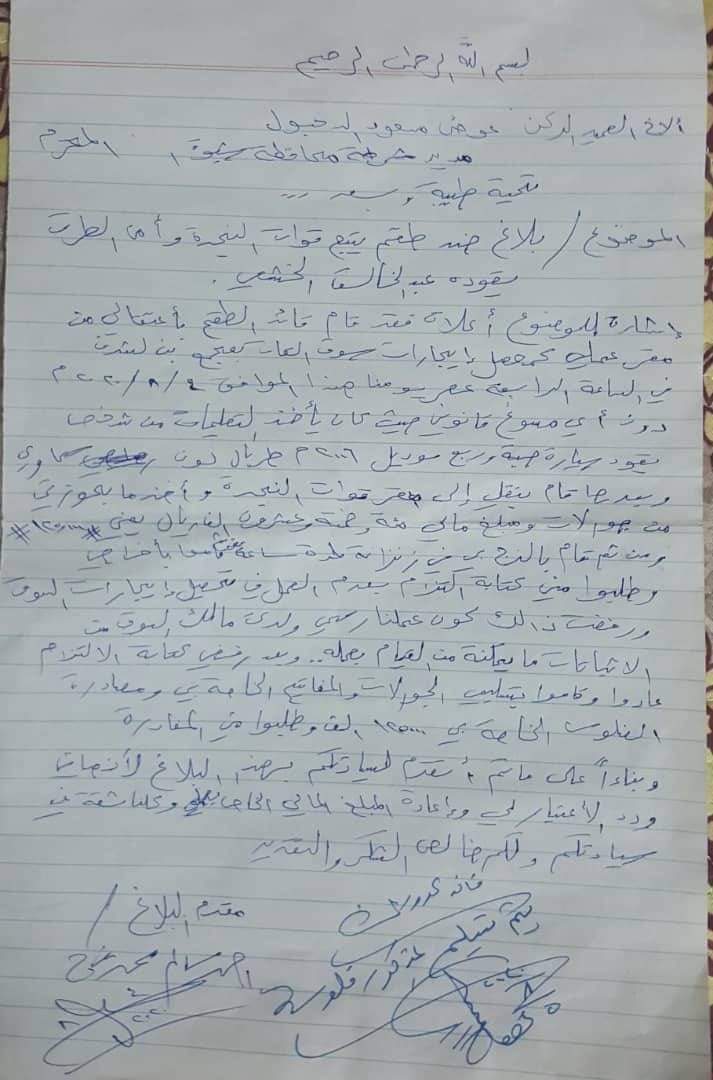 بسم الله الرحمن الرحيم
الاخ العميد الركن عوض مسعود الدحبول
مدير شرطة محافظة شبوة المحترم
تحية طيبة وبعد ...
الموضوع / بلاغ ضد طقم يتبع قوات النجدة وأمن الطرق
يقوده عبدالخالق الخشعي .
إشارة للموضوع أعلاه فقد قام قائد الطقم بأعتقالي من
مقر عملي كمحصل إيجارات سوق القات بعتق بن لشرف
في الساعة الرابعة عصر يومنا هذا الموافق ٤ / ٨ / ٢٠٢٠م
دون أي مسوغ قانوني حيث كان يأخذ التعليمات من شخص
يقود سيارة حبة وربع موديل ٢٠٠٦م طربال لون سماوي
وبعدها قام بنقلي إلى مقر قوات النجدة وأخذ ما بحوزتي
من جوالات ومبلغ مالي مئة وخمسة وعشرون الف ريال يمني #١٢٥٠٠٠#
ومن ثم قام بالزج بي في زنزانة لمدة ساعة قاموا بأخراجي
وطلبوا مني كتابة إلتزام بعدم العمل في تحصيل إيجارات السوق
ورفضت ذالك كون عملنا رسمي ولدى مالك السوق من
الاثباتات ما يمكنه من القيام بعمله .. وبعد رفضي كتابة الالتزام
عادوا وقاموا بتسليمي الجوالات والمفاتيح الخاصة بي ومصادرة
الفلوس الخاصة بي ١٢٥٠٠٠ الف وطلبوا مني المغادرة
وبناءاً على ماتم أتقدم لسيادتكم بهذا البلاغ لأنصافي
ورد الأعتبار لي وإعادة المبلغ المالي الخاص بي وكلنا ثقة في
سيادتكم ولكم خالص الشكر والتقدير
مقدم البلاغ /
سالم محمد
٢٠٢٠